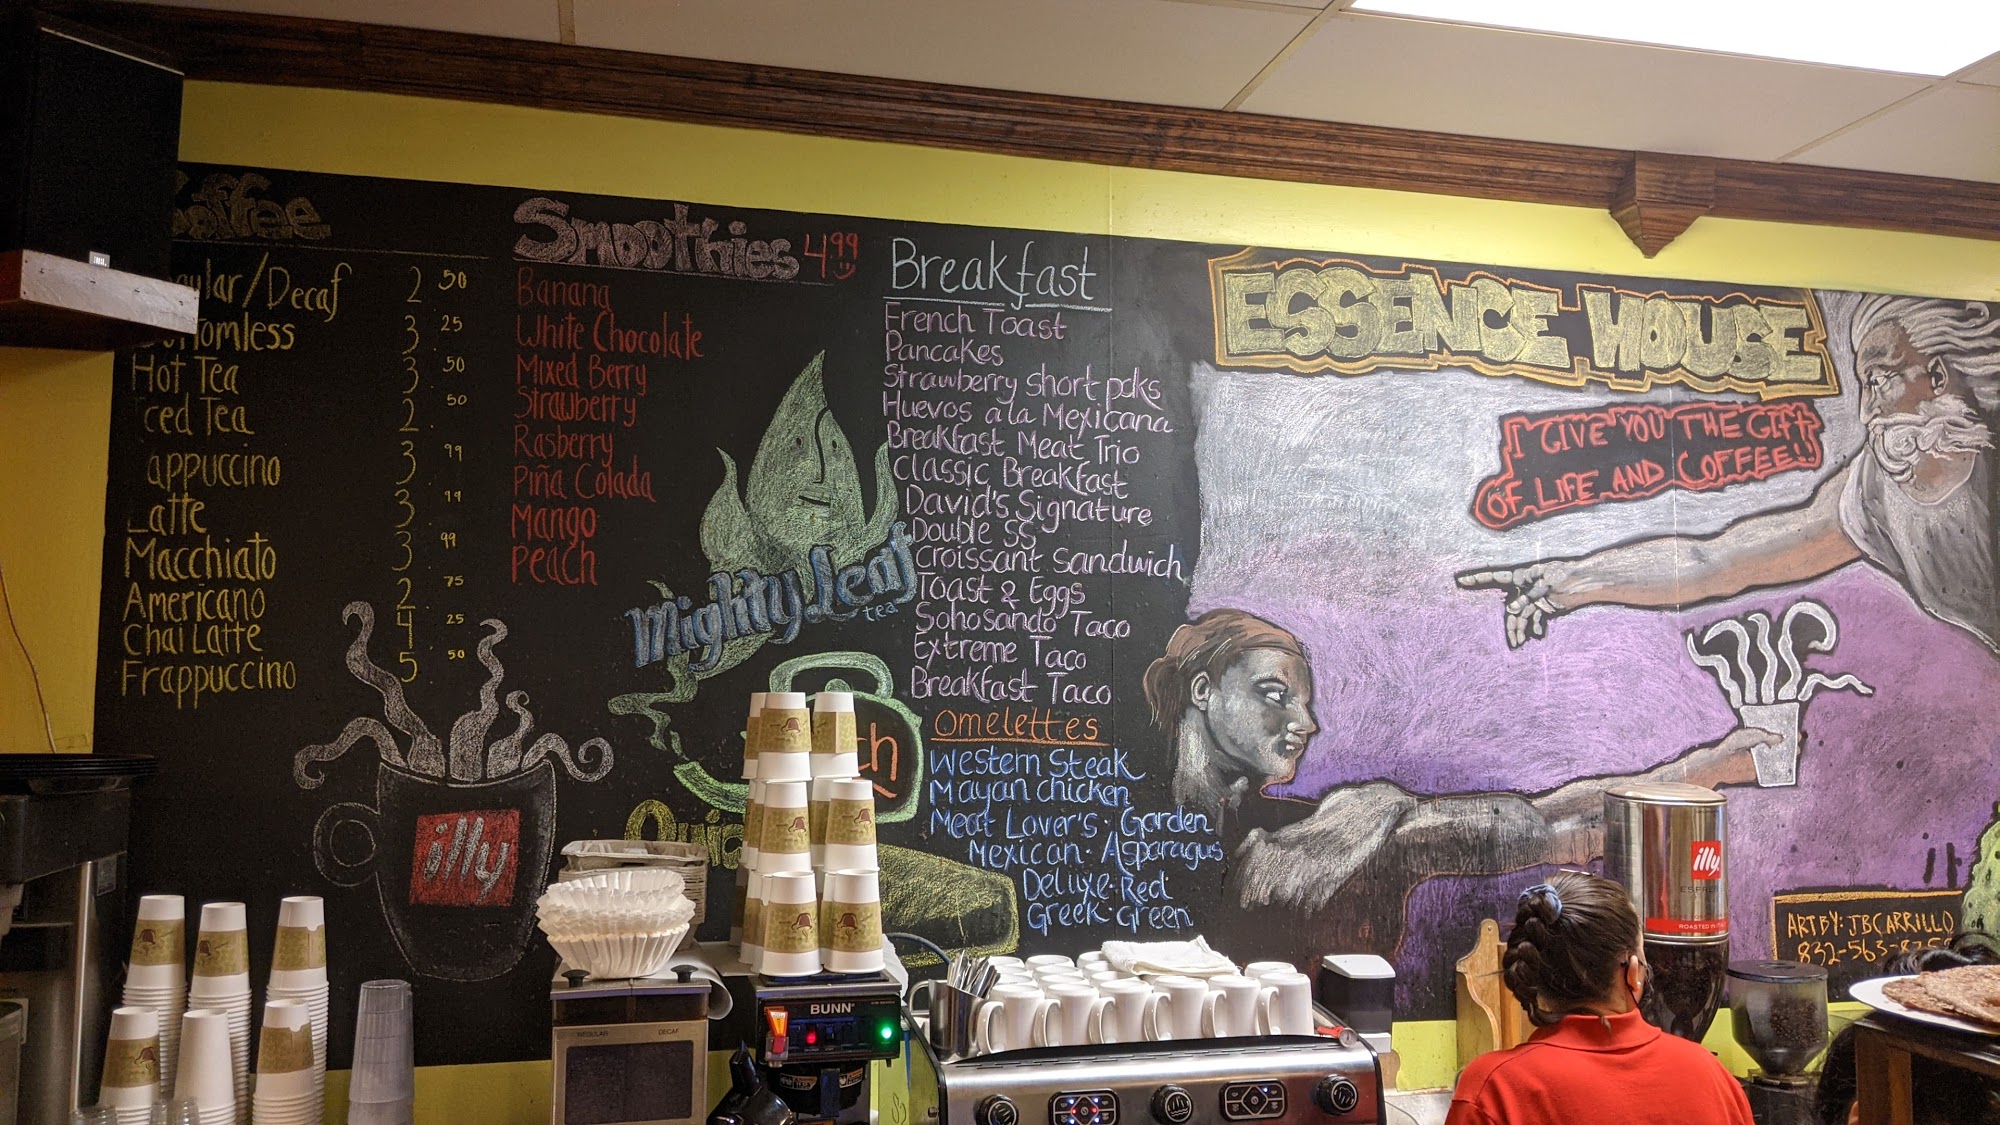 Coffee
ular/Decaf 2 50
tomless 3 25
Hot Tea 3 50
ced Tea 2 50
appuccino 3 99
Latte 3 99
Macchiato 3 99
Americano 2 75
Chai Latte 4 25
Frappuccino 5 50
illy
Smoothies 4.99
Banana
White Chocolate
Mixed Berry
Strawberry
Rasberry
Piña Colada
Mango
Peach
Mighty Leaf
tea
ch
Quic
Breakfast
French Toast
Pancakes
Strawberry short pcks
Huevos a la Mexicana
Breakfast Meat Trio
Classic Breakfast
David's Signature
Double SS
Croissant Sandwich
Toast & Eggs
Sohosando Taco
Extreme Taco
Breakfast Taco
Omelettes
Western Steak
Mayan chicken
Meat Lover's · Garden
Mexican · Asparagus
Deluxe · Red
Greek · Green
ESSENCE HOUSE
I GIVE YOU THE GIFT
OF LIFE AND COFFEE!!
illy
ESPRE
ART BY: JBCARRILLO
832-563-
REGULAR DECAF
BUNN